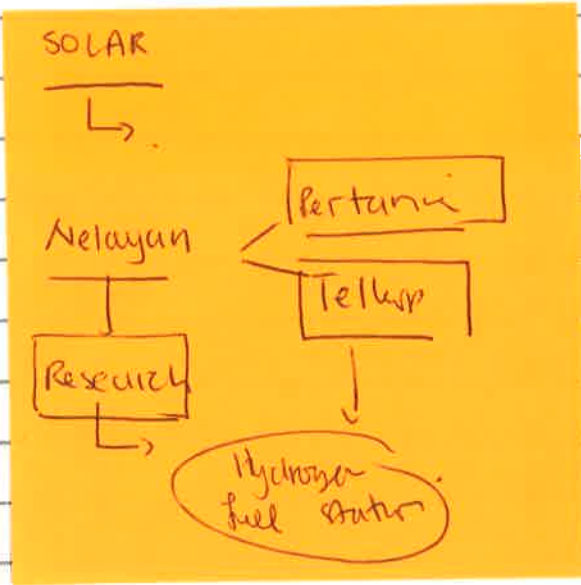 SOLAR
Nelayan
Pertani
Research
Hydrogen
fuel station